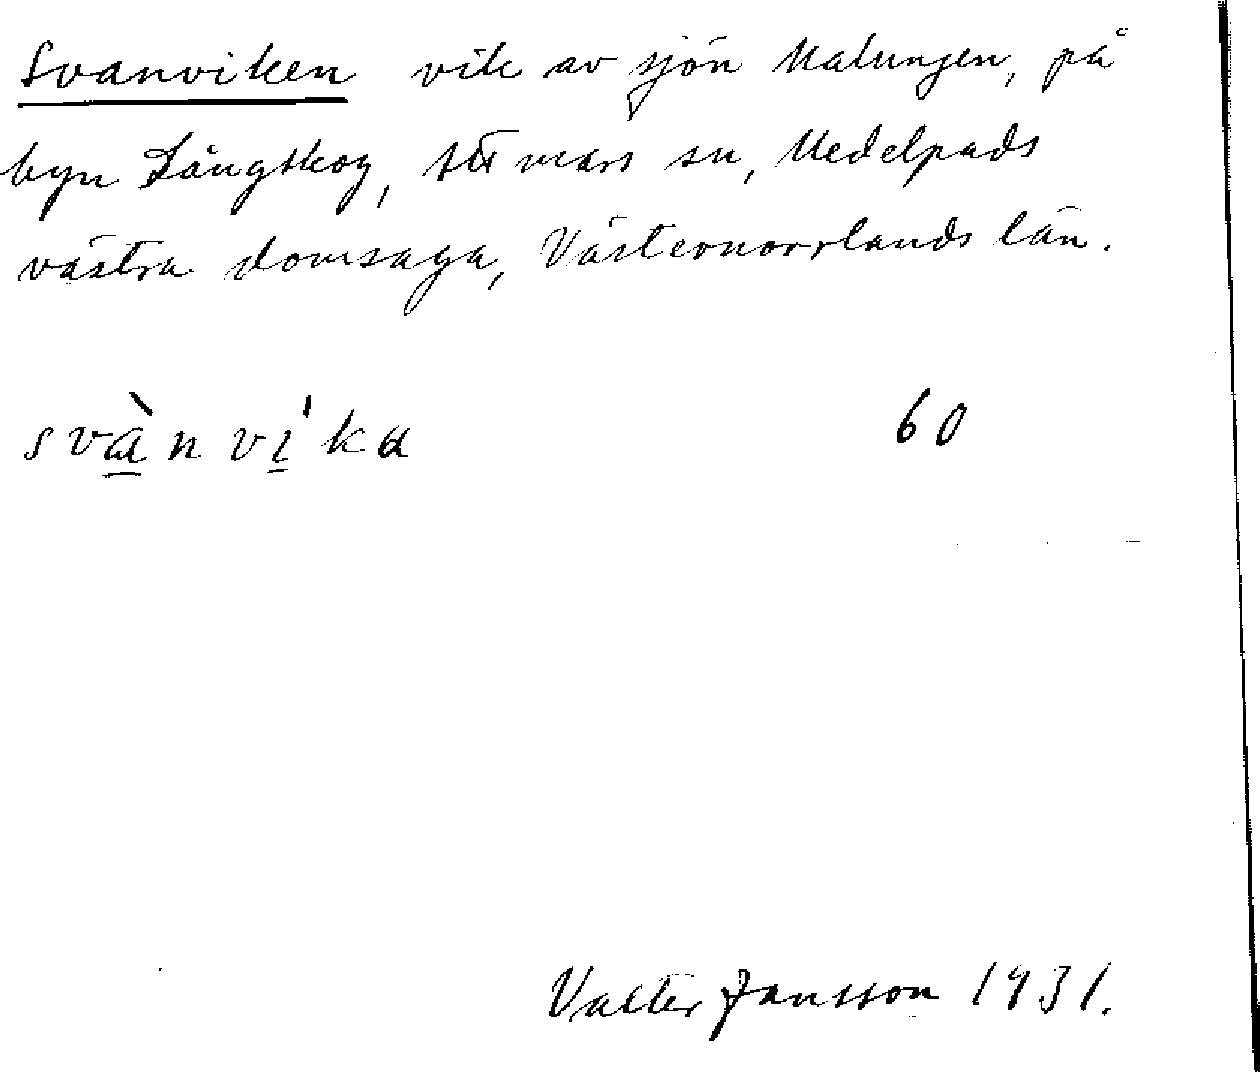 Svanviken vik av sjön Malungen, på
byn Långskog, Attmars sn, Medelpads
västra domsaga, Västernorrlands län.
svànvi'ka 60
Valter Jansson 1931.